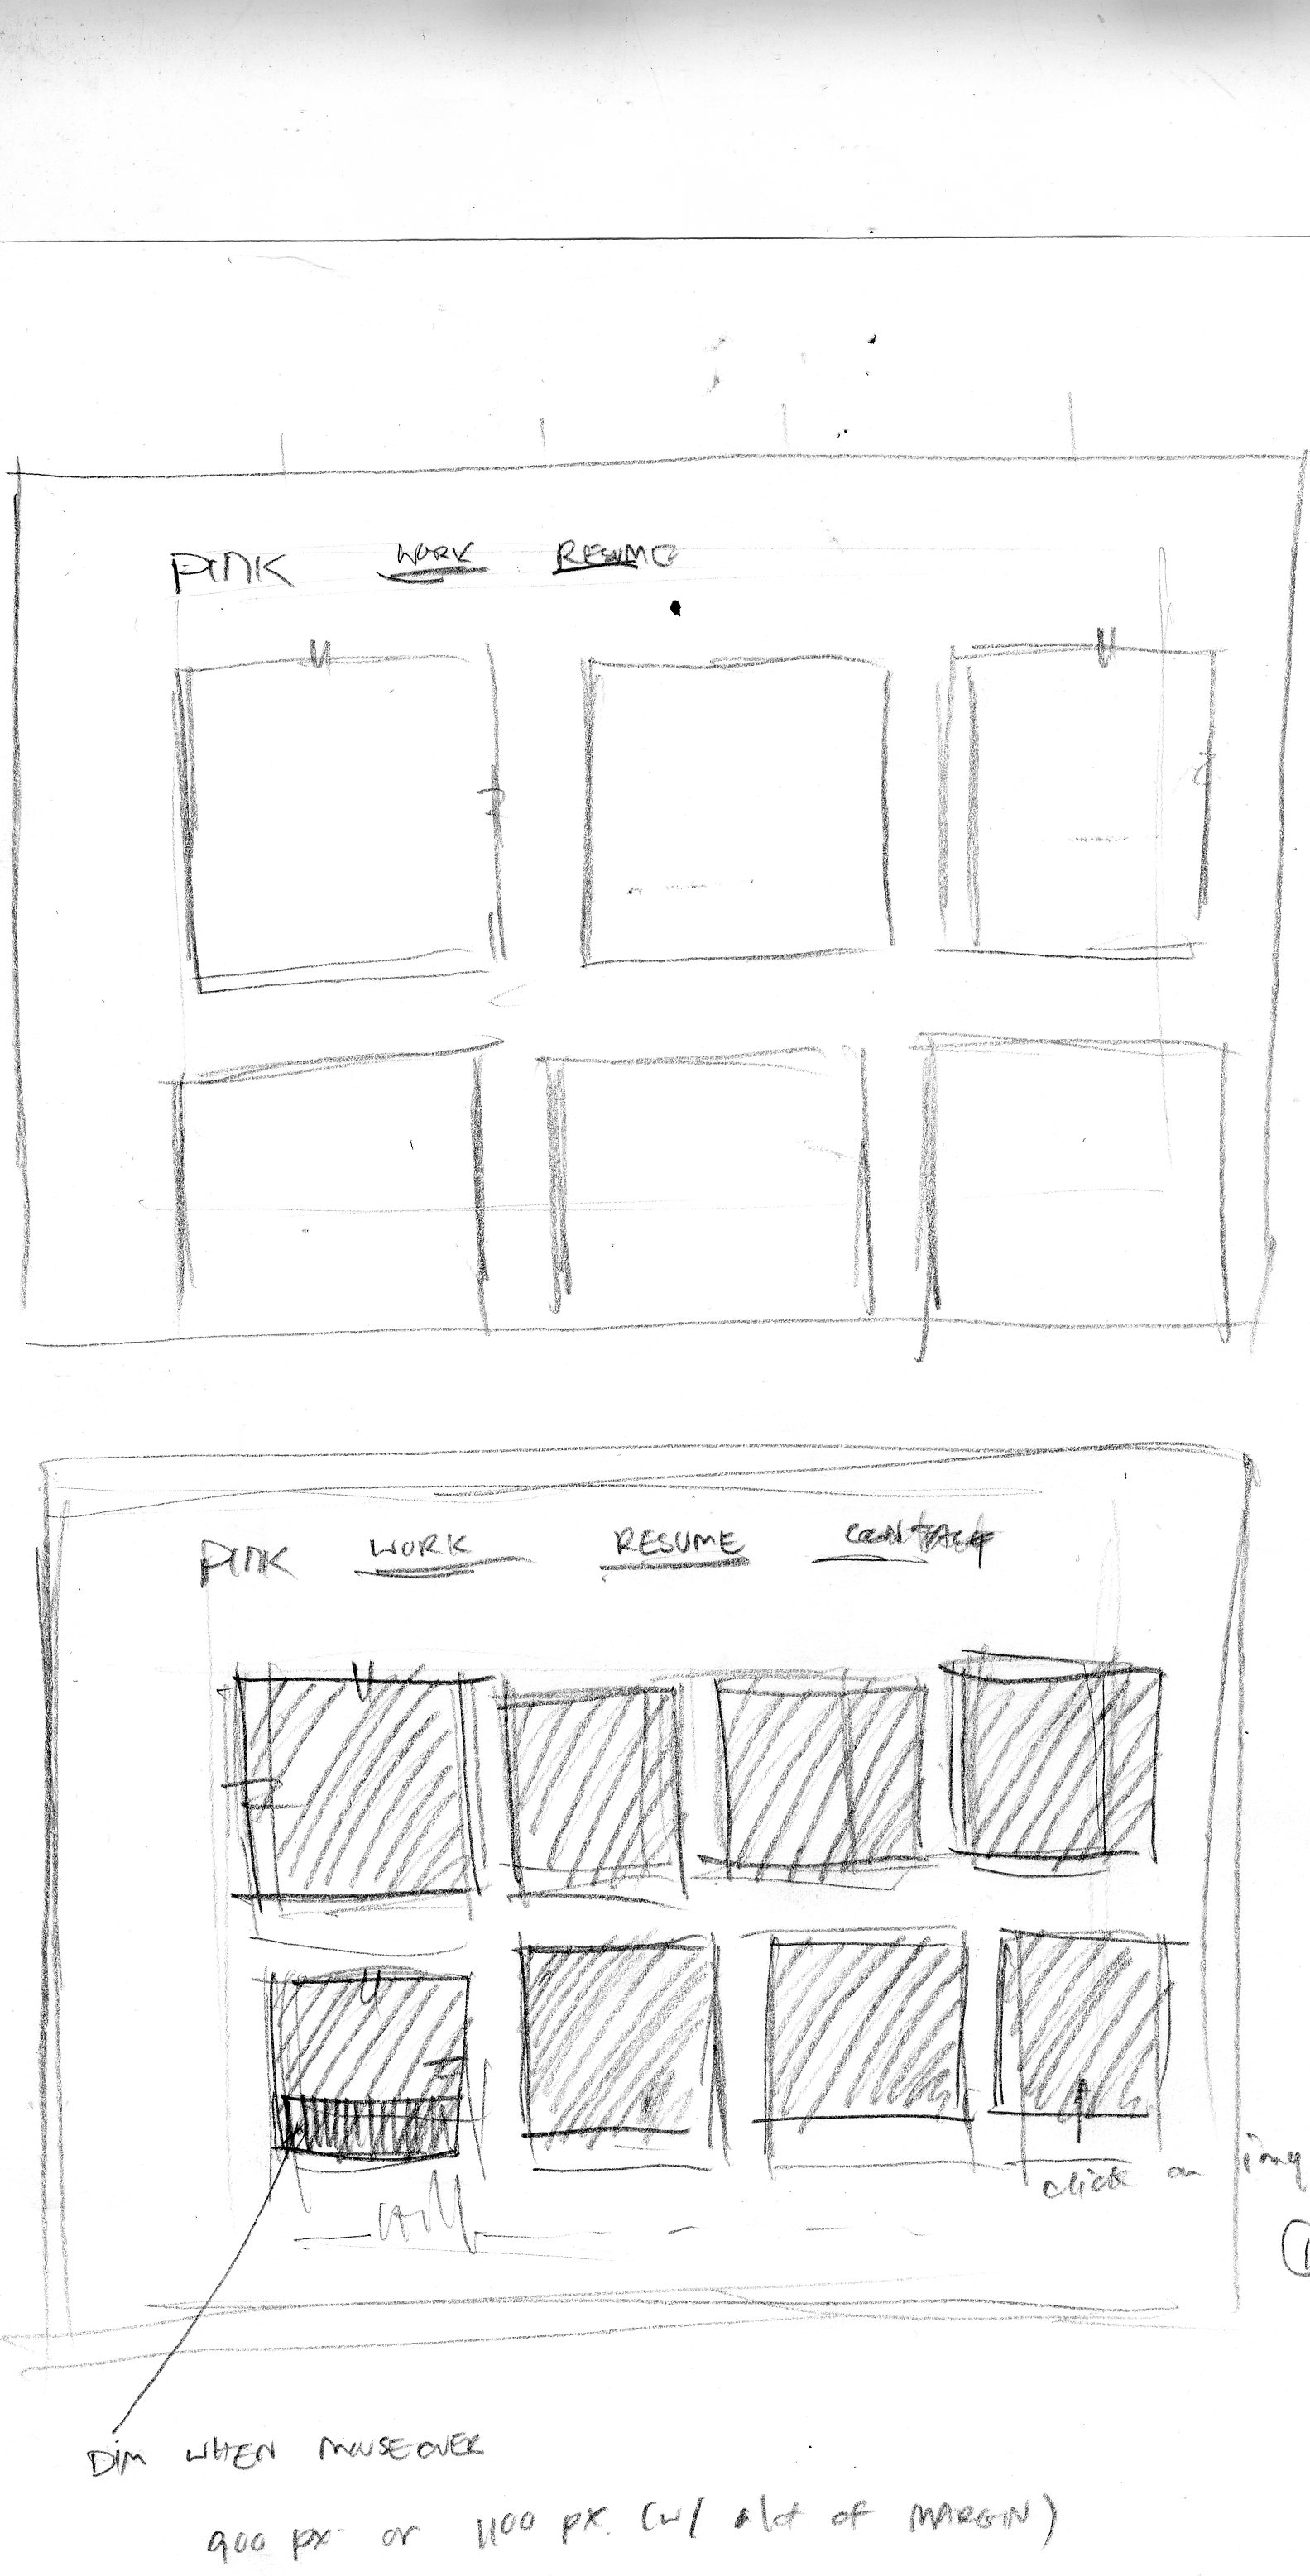 PINK WORK RESUME
PINK WORK RESUME CONTACT
click on
DIM WHEN MOUSEOVER
900 px or 1100 px. (w/ alot of MARGIN)